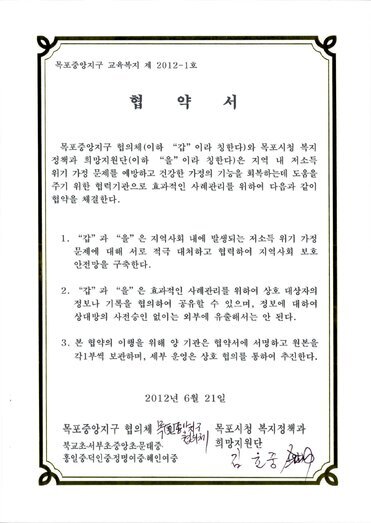 목포중앙지구 교육복지 제 2012-1호
협 약 서
목포중앙지구 협의체(이하 “갑”이라 칭한다)와 목포시청 복지
정책과 희망지원단(이하 “을”이라 칭한다)은 지역 내 저소득
위기 가정 문제를 예방하고 건강한 가정의 기능을 회복하는데 도움을
주기 위한 협력기관으로 효과적인 사례관리를 위하여 다음과 같이
협약을 체결한다.
1. “갑”과 “을”은 지역사회 내에 발생되는 저소득 위기 가정
문제에 대해 서로 적극 대처하고 협력하여 지역사회 보호
안전망을 구축한다.
2. “갑”과 “을”은 효과적인 사례관리를 위하여 상호 대상자의
정보나 기록을 협의하여 공유할 수 있으며, 정보에 대하여
상대방의 사전승인 없이는 외부에 유출해서는 안 된다.
3. 본 협약의 이행을 위해 양 기관은 협약서에 서명하고 원본을
각1부씩 보관하며, 세부 운영은 상호 협의를 통하여 추진한다.
2012년 6월 21일
목포중앙지구 협의체 목포시청 복지정책과
북교초서부초중앙초문태중 희망지원단
홍일중덕인중정명여중혜인여중 김호중